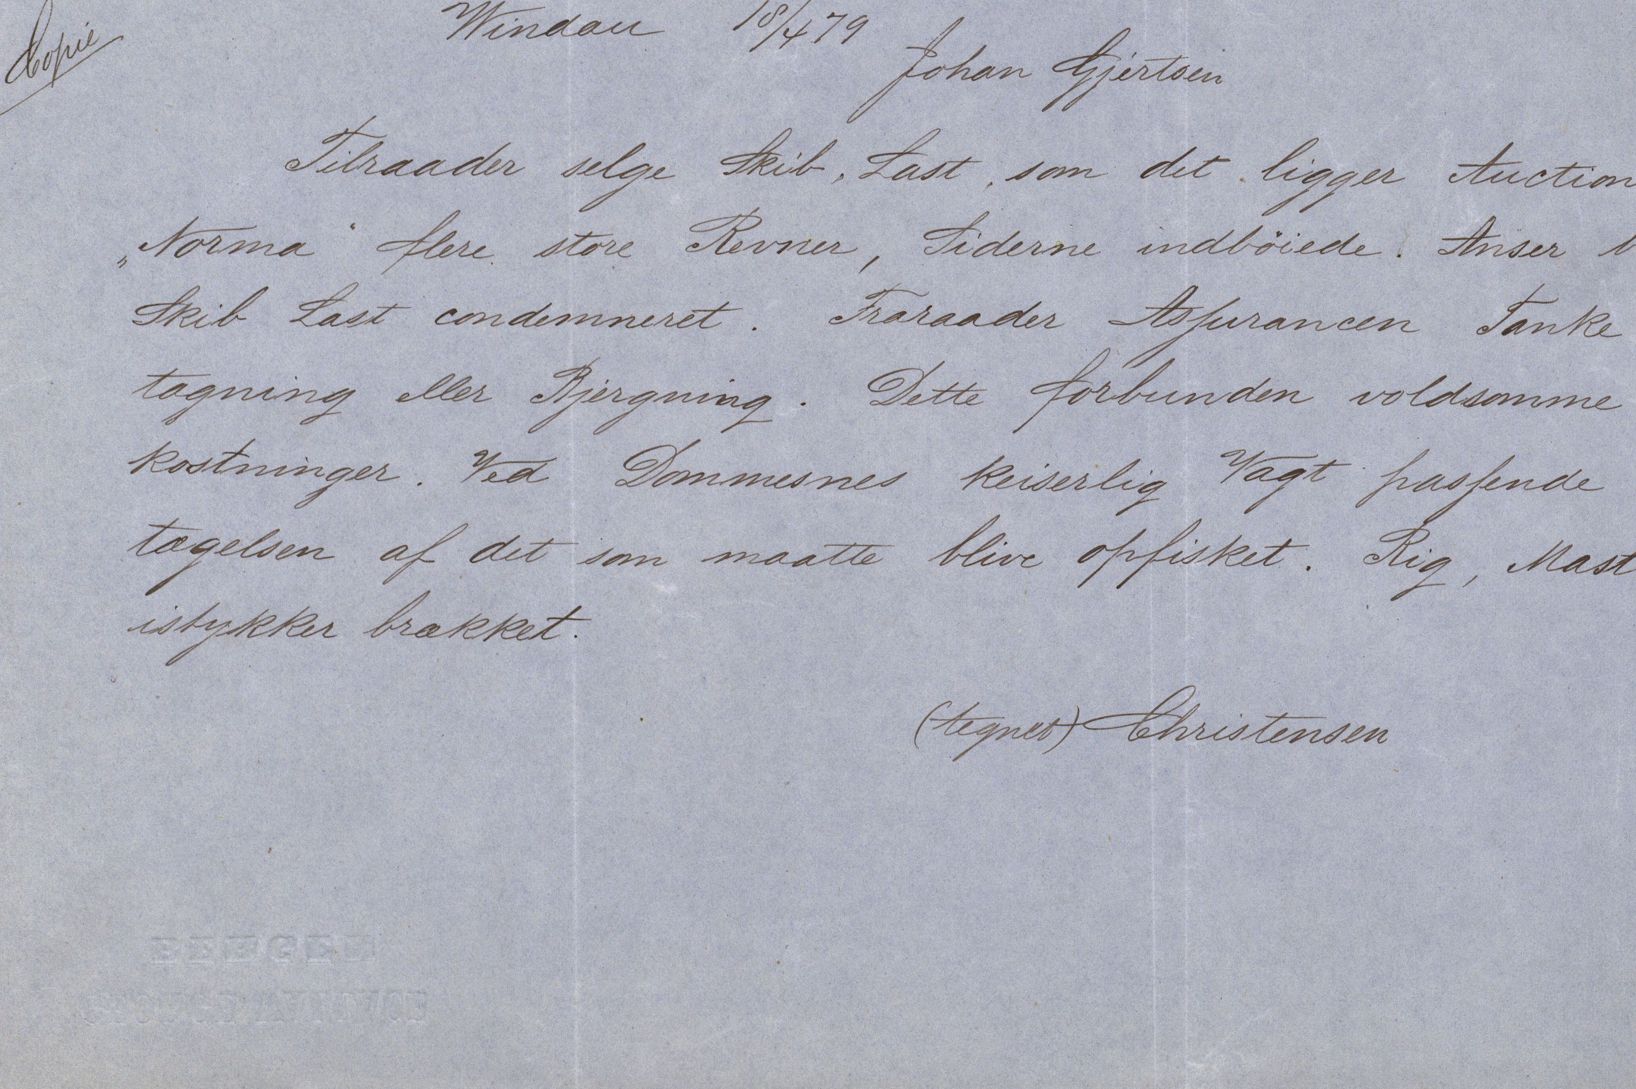 Copie
Windau 18/4 79
Johan Gjertsen
Tilraader selge Skib, Last, som det ligger Auction
„Norma" flere store Revner, Siderne indböiede. Anser
Skib Last condemneret. Fraraader Assurancen Tanke
tagning eller Bjergning. Dette forbunden voldsomme
kostninger. Ved Dommesnes keiserlig Vagt passende
tagelsen af det som maatte blive opfisket. Rig, Mast
istykker brækket.
(tegnet) Christensen
BERGEN